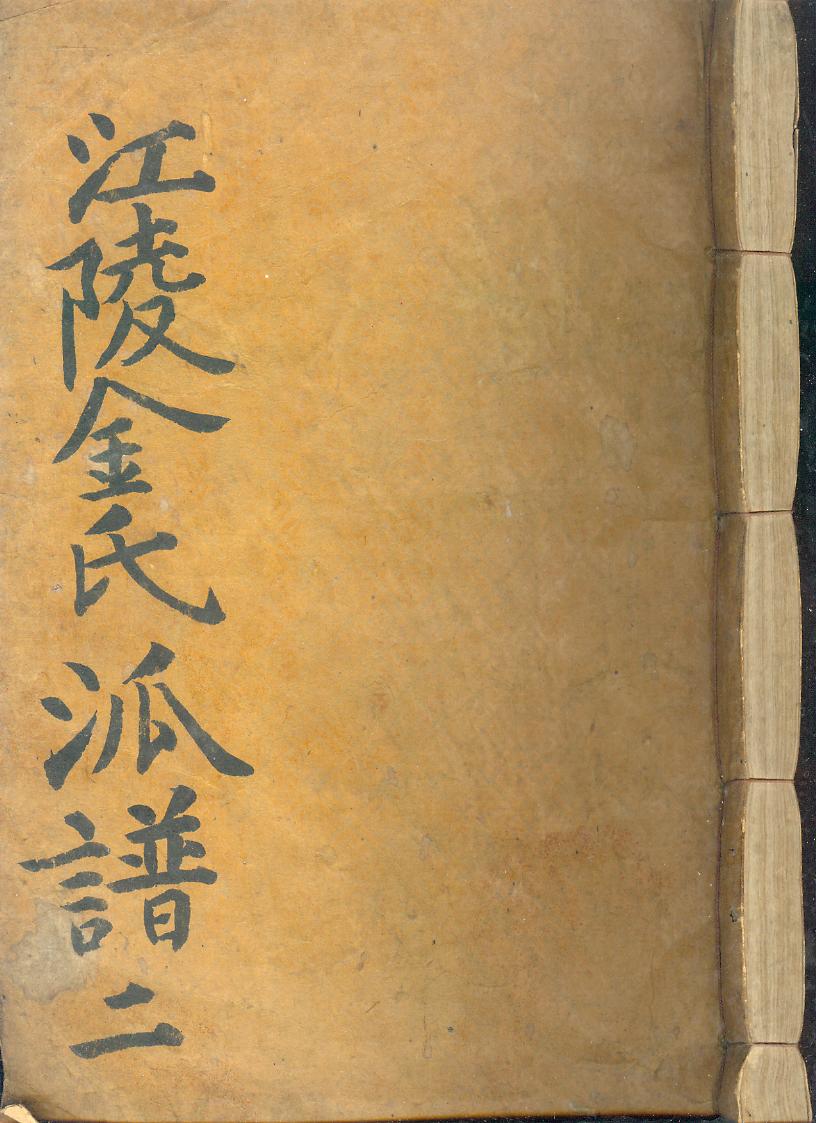 江陵金氏派譜二